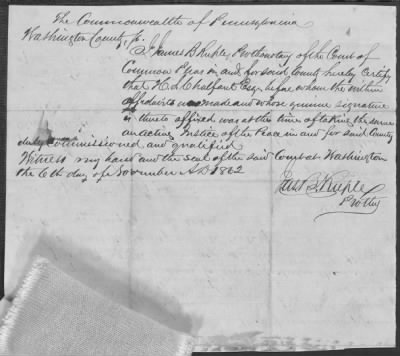 The Commonwealth of Pennsylvania
Washington County, ss.
I James B. Ruple, Prothonotary of the Court of
Common Pleas in and for said County hereby Certify
that H. L. Chalfant Esq. before whom the within
affidavit was made and whose genuine signature
is thereto affixed was at the time of taking the same
an acting Justice of the Peace in and for said County
duly Commissioned and qualified
Witness my hand and the seal of the said Court at Washington
the 6th day of November A.D. 1862
James B. Ruple
Prothy